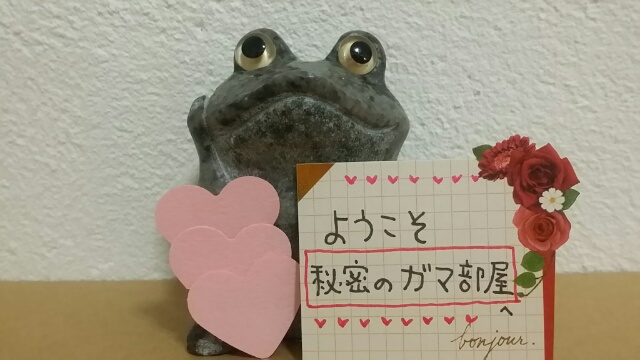 ようこそ
秘密のガマ部屋
へ
bonjour.